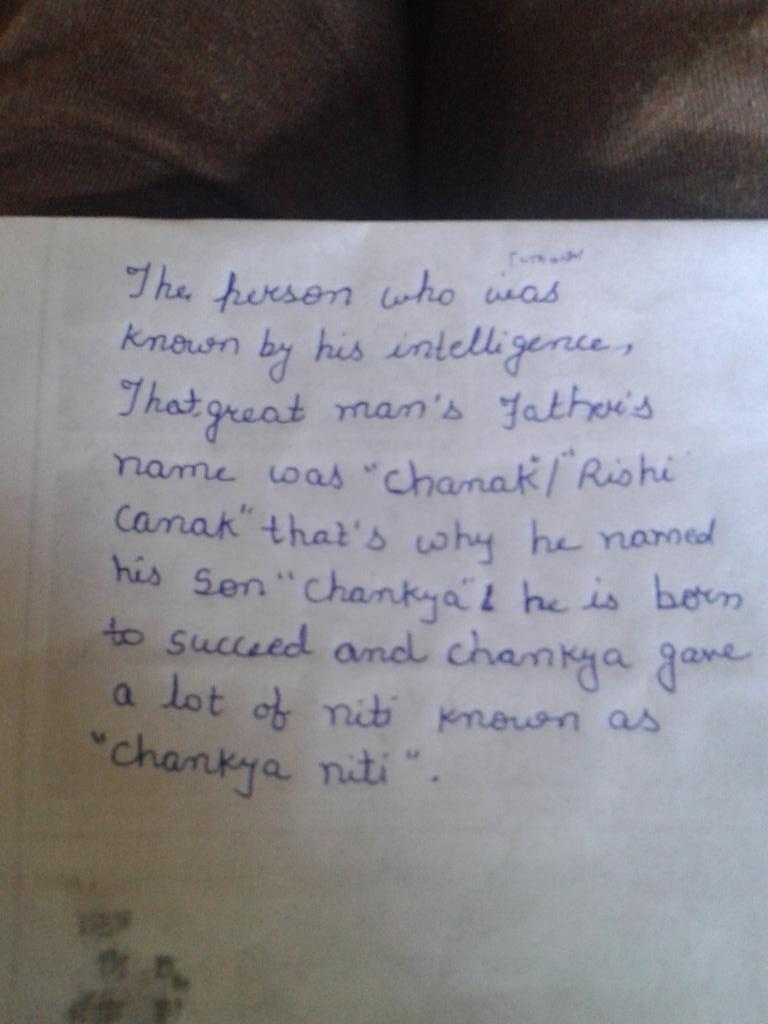 The person who was
known by his intelligence,
That great man's Father's
name was "Chanak"/"Rishi
Canak" that's why he named
his Son "Chankya" & he is born
to succeed and chankya gave
a lot of niti known as
"Chankya niti".